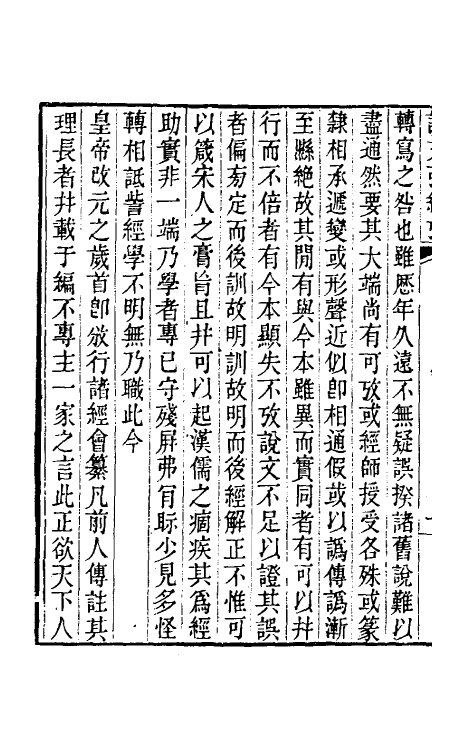 轉寫之咎也雖歷年久遠不無疑誤揆諸舊說難以
盡通然要其大端尚有可攷或經師授受各殊或篆
隸相承遞變或形聲近似卽相通假或以譌傳譌漸
至縣絶故其閒有與今本雖異而實同者有可以幷
行而不倍者有今本顯失不攷說文不足以證其誤
者偏旁定而後訓故明訓故明而後經解正不惟可
以箴宋人之膏肓且幷可以起漢儒之痼疾其爲經
助實非一端乃學者專己守殘屏弗肎眎少見多怪
轉相詆訾經學不明無乃職此今
皇帝改元之歲首卽㳄行諸經會纂凡前人傳註其
理長者幷載于編不專主一家之言此正欲天下人